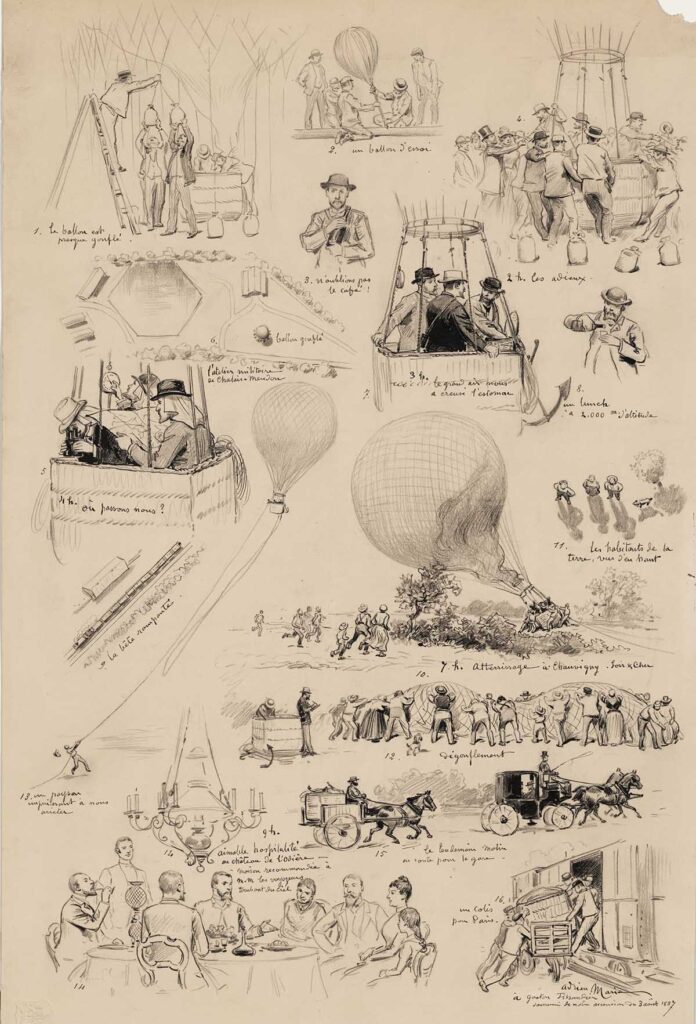 1. Le ballon est
presque gonflé.
2. un ballon d'essai
3. n'oublions pas
le café !
4.
2 h. les adieux -
5
4 h. où passons nous ?
6.
ballon gonflé
l'atelier militaire
de Chalais-Meudon
7.
3 h. le grand air nous
a creusé l'estomac
8.
un lunch
à 2.000 m d'altitude
9 la bête rampante
10.
7 h. Atterrissage à Chauvigny. Loir & Cher
11.
Les habitants de la
terre, vus d'en haut
12. dégonflement
13. un paysan
à nous
14
9 h.
aimable hospitalité
au château de l'
maison recommandée à
M.M. les voyageurs
tombant du ciel
15 Le lendemain matin
en route pour la gare.
16.
un colis
pour Paris.
14
Adrien Marie
à Gaston Tissandier
souvenir de notre ascension du 3 août 1887